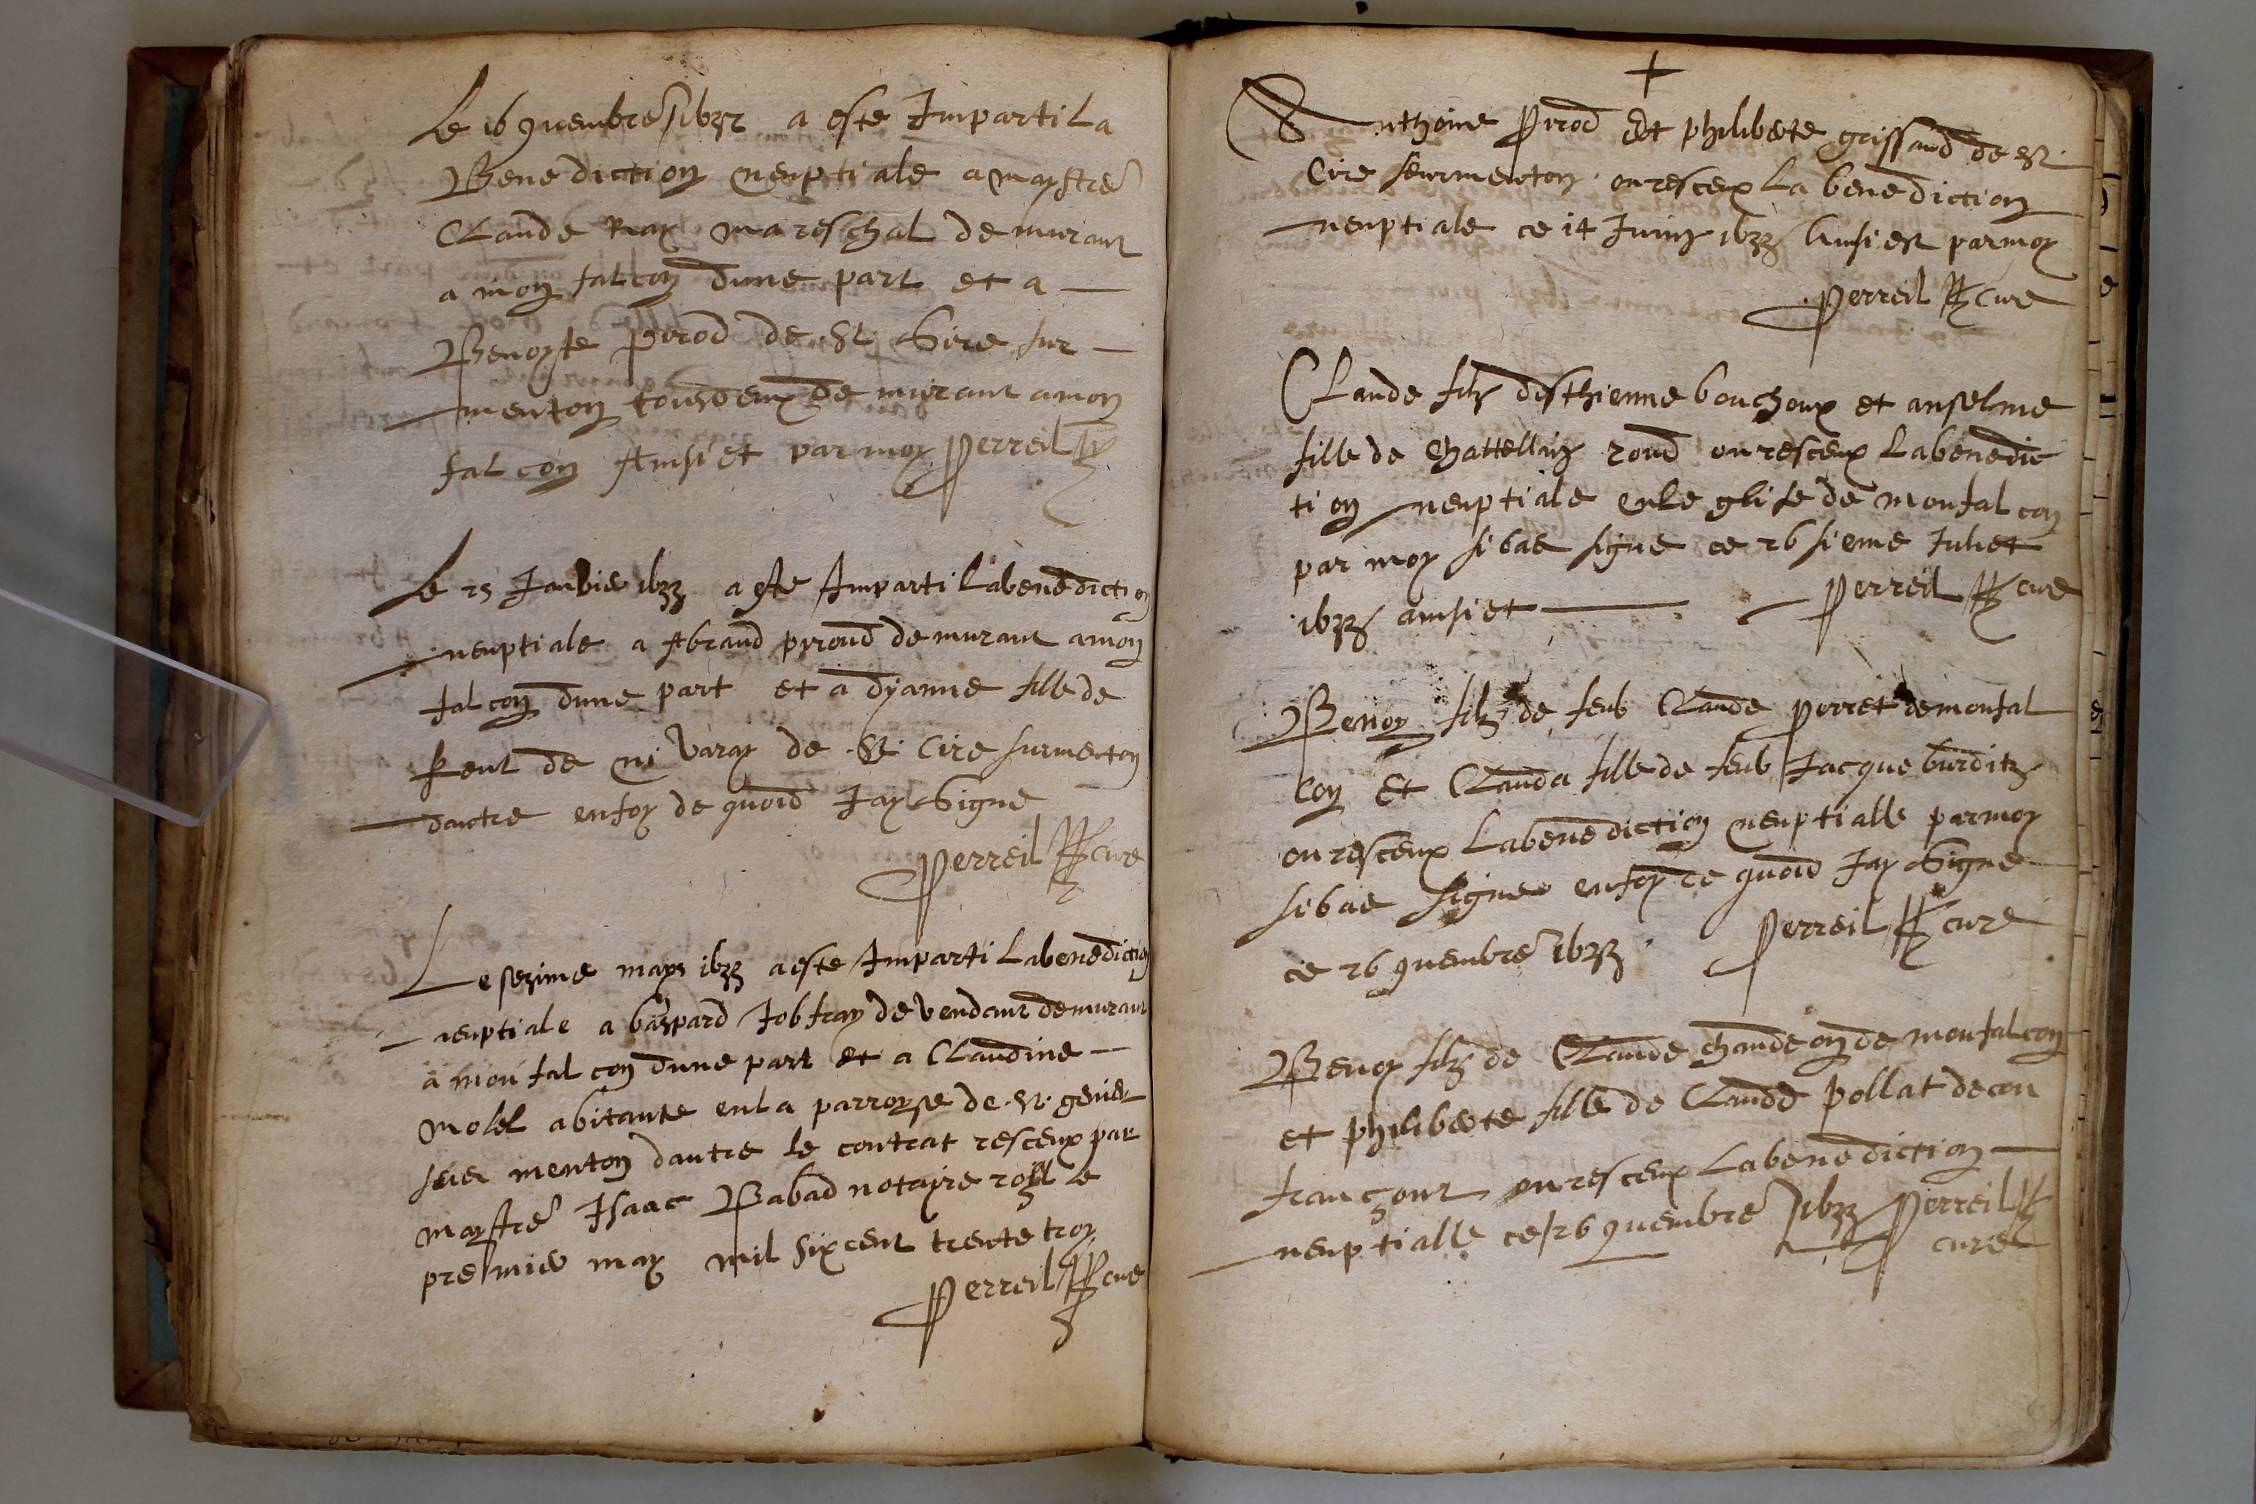 Le 16 9uembre 1632 a este Imparti La
Benediction neuptiale a maystre
Claude Ray mareschal demurant
a mon falcon dune part et a
Benoyte Pirod de St Sire sur
menton tousdeux demurant amon
falcon Ainsi et par moy Perreil
Le 25 Janvier 1633 a este Imparti Labenediction
neuptiale a Abraud piroud demurant amon
falcon dune part et a dyanne fille de
de ni Varay de St Cire surmenton
dautre enfoy de quoid Jay Signe
Perreil cure
Le sezime mays 1633 a este Imparti Labenediction
neuptiale a Gaspard Jobfray de vendeur demurant
a mon falcon dune part et a Claudine
Molel abitante enla parroyse de St genier
seur menton dautre le contrat resceux par
maystre Isaac Babad notayre royl le
premier may mil Six cent trente troy
Perreil cure
Anthoine Pirod Et philiberte grissaud de St
Cire seurmenton on resceux La benediction
neuptiale ce 14 Juing 1633 Ainsi est parmoy
Perreil cure
Claude filz desthienne bouchoux et anselme
fille de Chattelling roud on resceux Labenedic
tion neuptiale enle glise de monfalcon
par moy si bas signe ce 26 sieme Juliet
1633 ainsi et Perreil cure
Benoy filz de feub Claude perret demonfal
con Et Clauda fille de feub Jacque burditz
on resceux Labenediction neuptialle parmoy
si bas signe enfoy de quoid Jay Signe
ce 26 9uembre 1633 Perreil cure
Benoy filz de Claude chandeon de monfalcon
et philiberte fille de Claude pollat decon
françour on resceux Labenediction
neuptialle ce 26 9uembre 1633 Perreil
cure